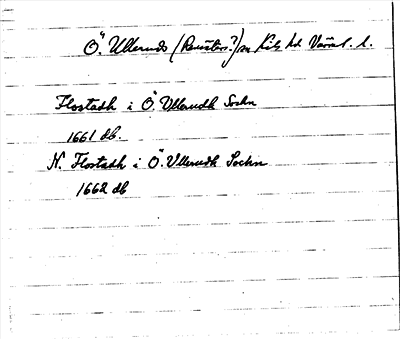 Ö. Ulleruds (Ransäters?) sn Kils hd Värml. l.
Flostadh i Ö. Ullerudh Sochn
1661 db.
N. Flostadh i Ö. Ullerudh Sochn
1662 db